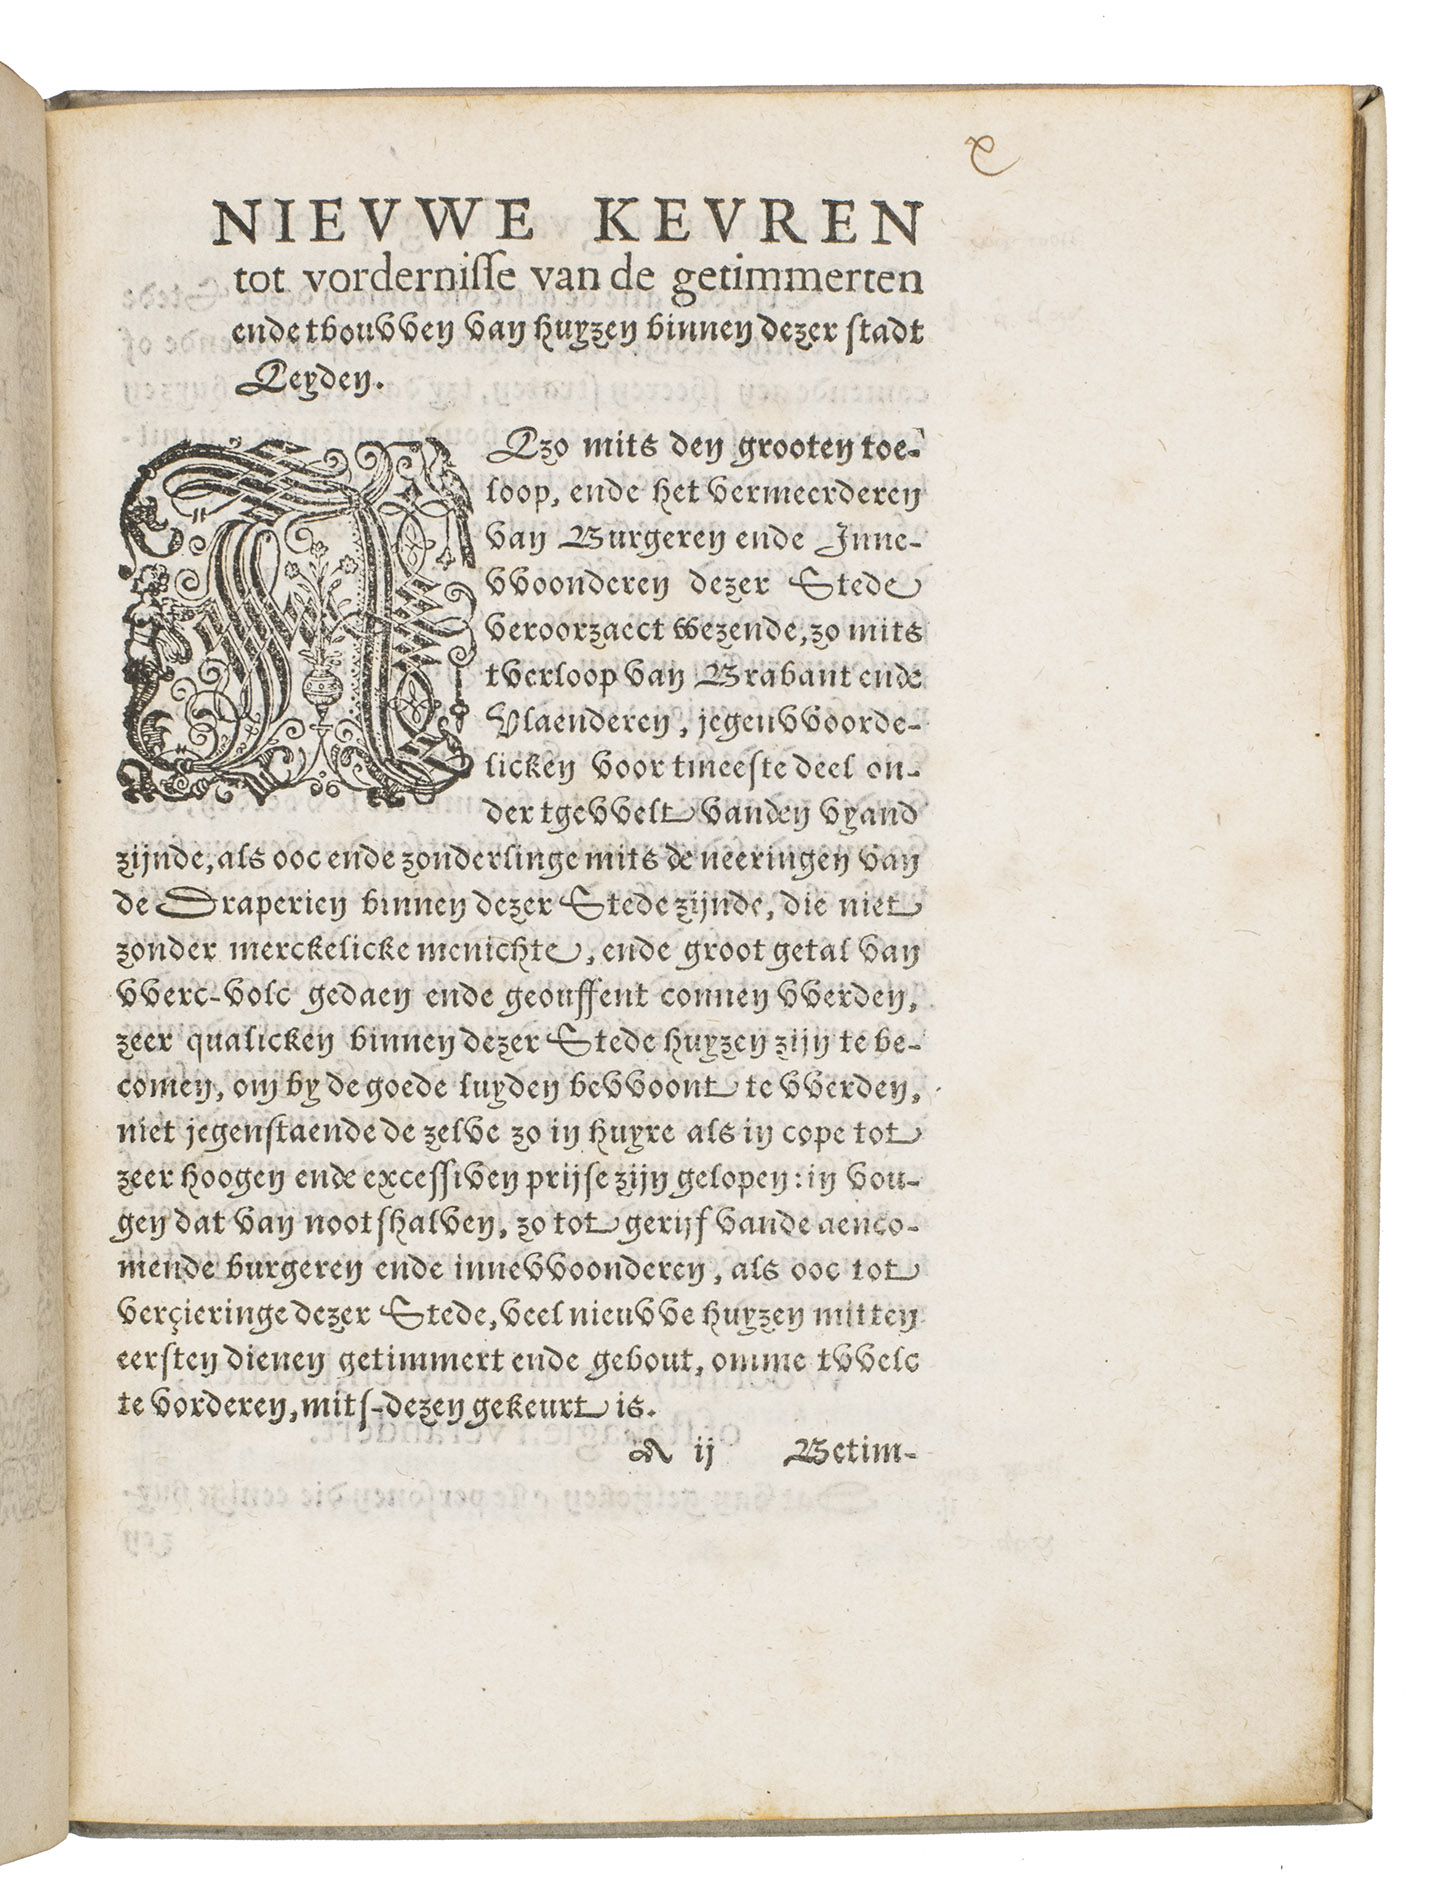 NIEVWE KEVREN
tot vordernisse van de getimmerten
ende tbouvven van huyzen binnen dezer stadt
Leyden.
ALzo mits den grooten toe-
loop, ende het vermeerderen
van Burgeren ende Inne-
vvoonderen dezer Stede
veroorzaect wezende, zo mits
tverloop van Brabant ende
Vlaenderen, jegenvvoorde-
licken voor tmeeste deel on-
der tgevvelt vanden vyand
zijnde, als ooc ende zonderlinge mits de neeringen van
de Draperien binnen dezer Stede zijnde, die niet
zonder merckelicke menichte, ende groot getal van
vverc-volc gedaen ende geouffent connen vverden,
zeer qualicken binnen dezer Stede huyzen zijn te be-
comen, om by de goede luyden bevvoont te vverden,
niet jegenstaende de zelve zo in huyre als in cope tot
zeer hoogen ende excessiven prijse zijn gelopen: in vou-
gen dat van nootshalven, zo tot gerijf vande aenco-
mende burgeren ende innevvoonderen, als ooc tot
verçieringe dezer Stede, veel nieuvve huyzen mitten
eersten dienen getimmert ende gebout, omme tvvelc
te vorderen, mits-dezen gekeurt is.
A ij Betim-